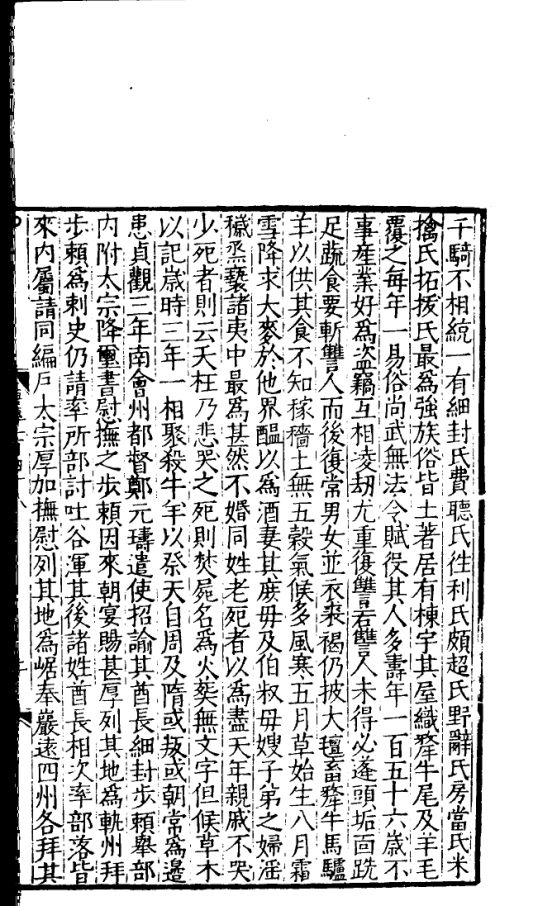 千騎不相統一有細封氏費聽氏徃利氏頗超氏野辭氏房當氏米
擒氏拓拔氏最為強族俗皆土著居有棟宇其屋織犛牛尾及羊毛
覆之每年一易俗尚武無法令賦役其人多壽年一百五十六歲不
事産業好為盜竊互相凌劫尤重復讐若讐人未得必蓬頭垢面跣
足蔬食要斬讐人而後復常男女並衣裘褐仍披大氊畜犛牛馬驢
羊以供其食不知稼穡土無五穀氣候多風寒五月草始生八月霜
雪降求大麥於他界醞以為酒妻其庶母及伯叔母嫂子弟之婦淫
穢烝䙝諸夷中最為甚然不婚同姓老死者以為盡天年親戚不哭
少死者則云夭枉乃悲哭之死則焚屍名為火葬無文字但候草木
以記歲時三年一相聚殺牛羊以祭天自周及隋或叛或朝常為邊
患貞觀三年南會州都督鄭元璹遣使招諭其酋長細封步賴舉部
内附太宗降璽書慰撫之步賴因來朝宴賜甚厚列其地為軌州拜
步賴為刺史仍請率所部討吐谷渾其後諸姓酋長相次率部落皆
來内屬請同編戶太宗厚加撫慰列其地為崌奉嚴遠四州各拜其